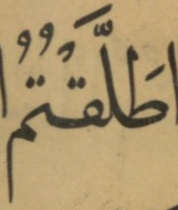 ا طَلَّقْتُمُ ا